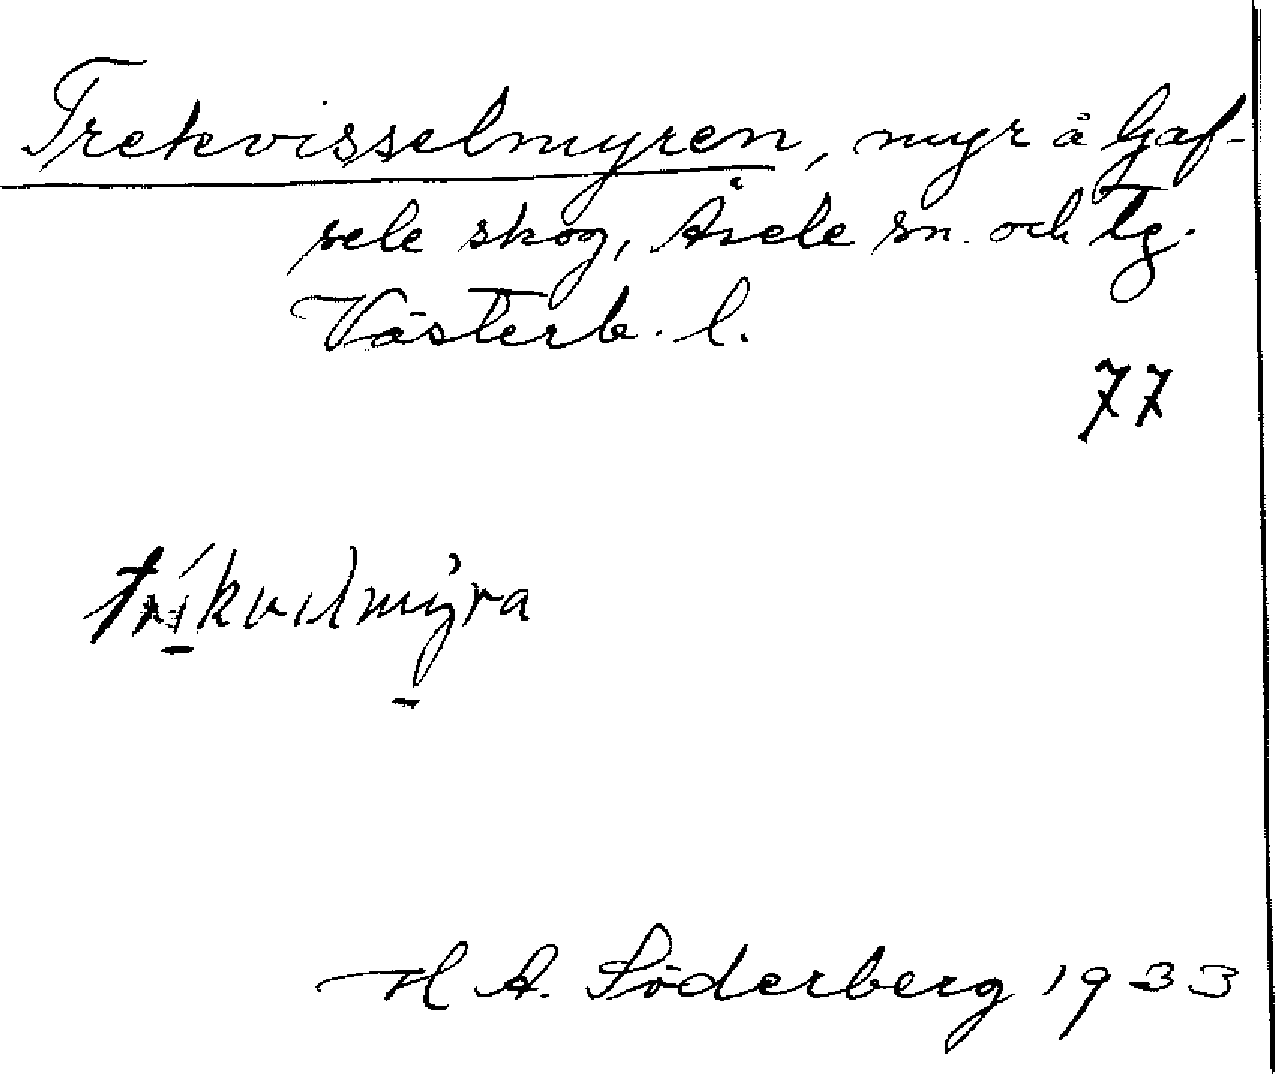 Trekvisselmyren, myr å Gaf-
sele skog, Åsele sn. och tg.
Västerb. l.
77
H A. Söderberg 1933